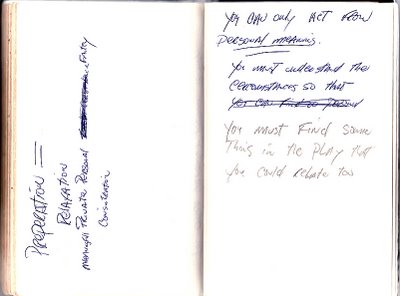 PREPARATION
RELAXATION
MEANINGFUL PRIVATE PERSONAL ENTITY
CONCENTRATION
YOU CAN only ACT FROM
PERSONAL MEANING.
You must understand the
CIRCUMSTANCES SO that
you can find so personal
You must Find Some
Thing in the PLAY that
you could relate too